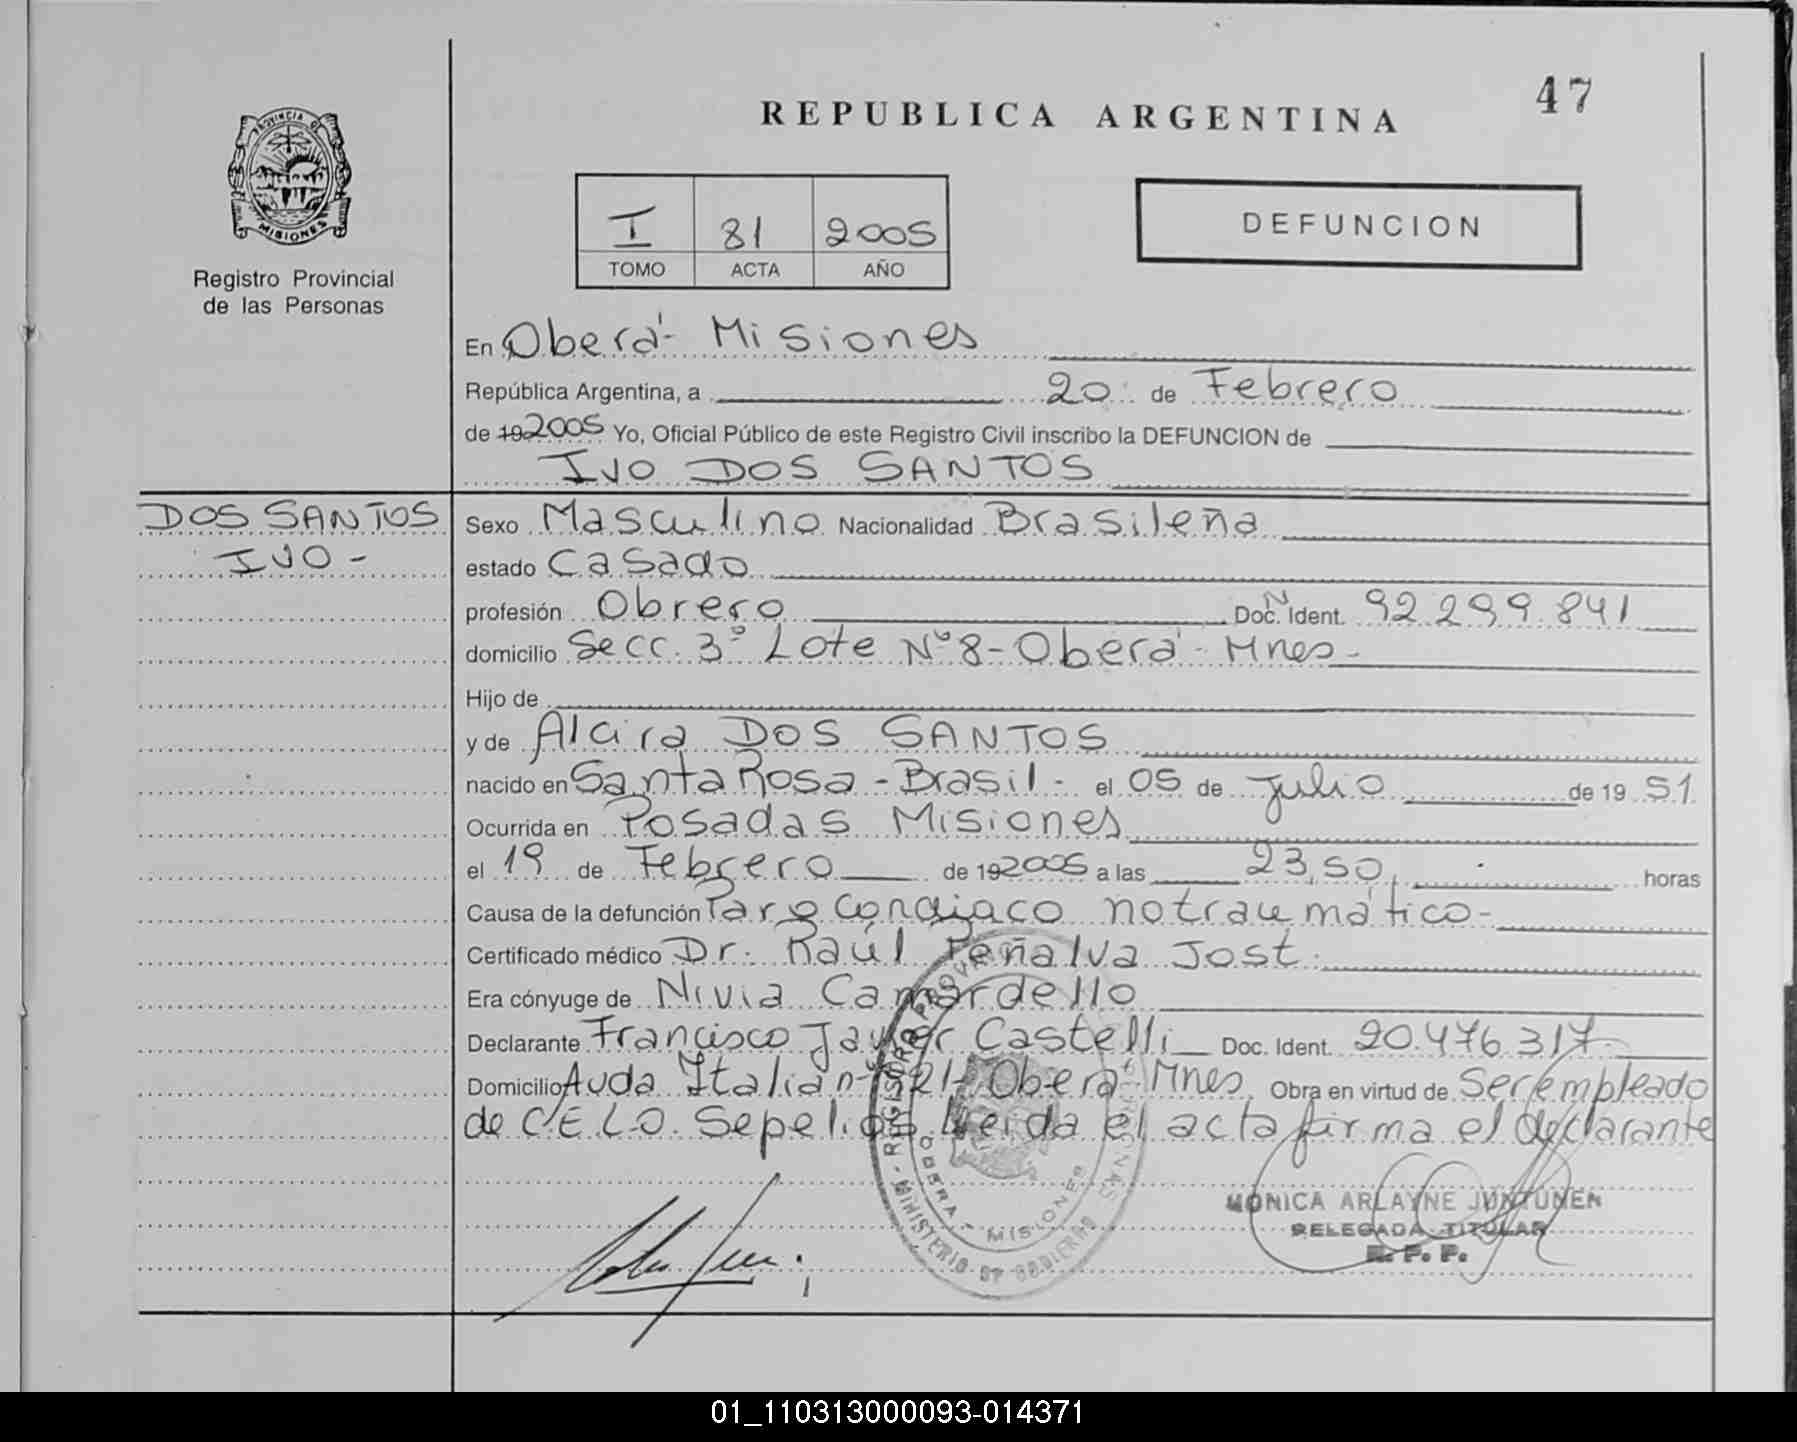 47
REPUBLICA ARGENTINA
PROVINCIA DE
MISIONES
Registro Provincial
de las Personas
I 81 2005
TOMO ACTA AÑO
DEFUNCION
En Oberá - Misiones
República Argentina, a 20 de Febrero
de 192005 Yo, Oficial Público de este Registro Civil inscribo la DEFUNCION de
IVO DOS SANTOS
DOS SANTOS
IVO -
Sexo Masculino Nacionalidad Brasileña
estado Casado
profesión Obrero Doc. N Ident. 92.299.841
domicilio Secc. 3º Lote Nº 8 - Oberá - Mnes -
Hijo de
y de Alcira DOS SANTOS
nacido en Santa Rosa - Brasil - el 05 de Julio de 19 51
Ocurrida en Posadas Misiones
el 19 de Febrero de 192005 a las 23,50 horas
Causa de la defunción Paro Cardiaco no traumático -
Certificado médico Dr. Raúl Peñalva Jost.
Era cónyuge de Nivia Camardello
Declarante Francisco Javier Castelli Doc. Ident. 20.476.317
Domicilio Avda Italia nº 21 - Oberá Mnes Obra en virtud de Ser empleado
de C.E.L.O. Sepelios. Leida el acta firma el declarante
MONICA ARLAYNE JUNTUNEN
DELEGADA TITULAR
R. P. P.
OBERA - MISIONES
MINISTERIO DE GOBIERNO
01_110313000093-014371